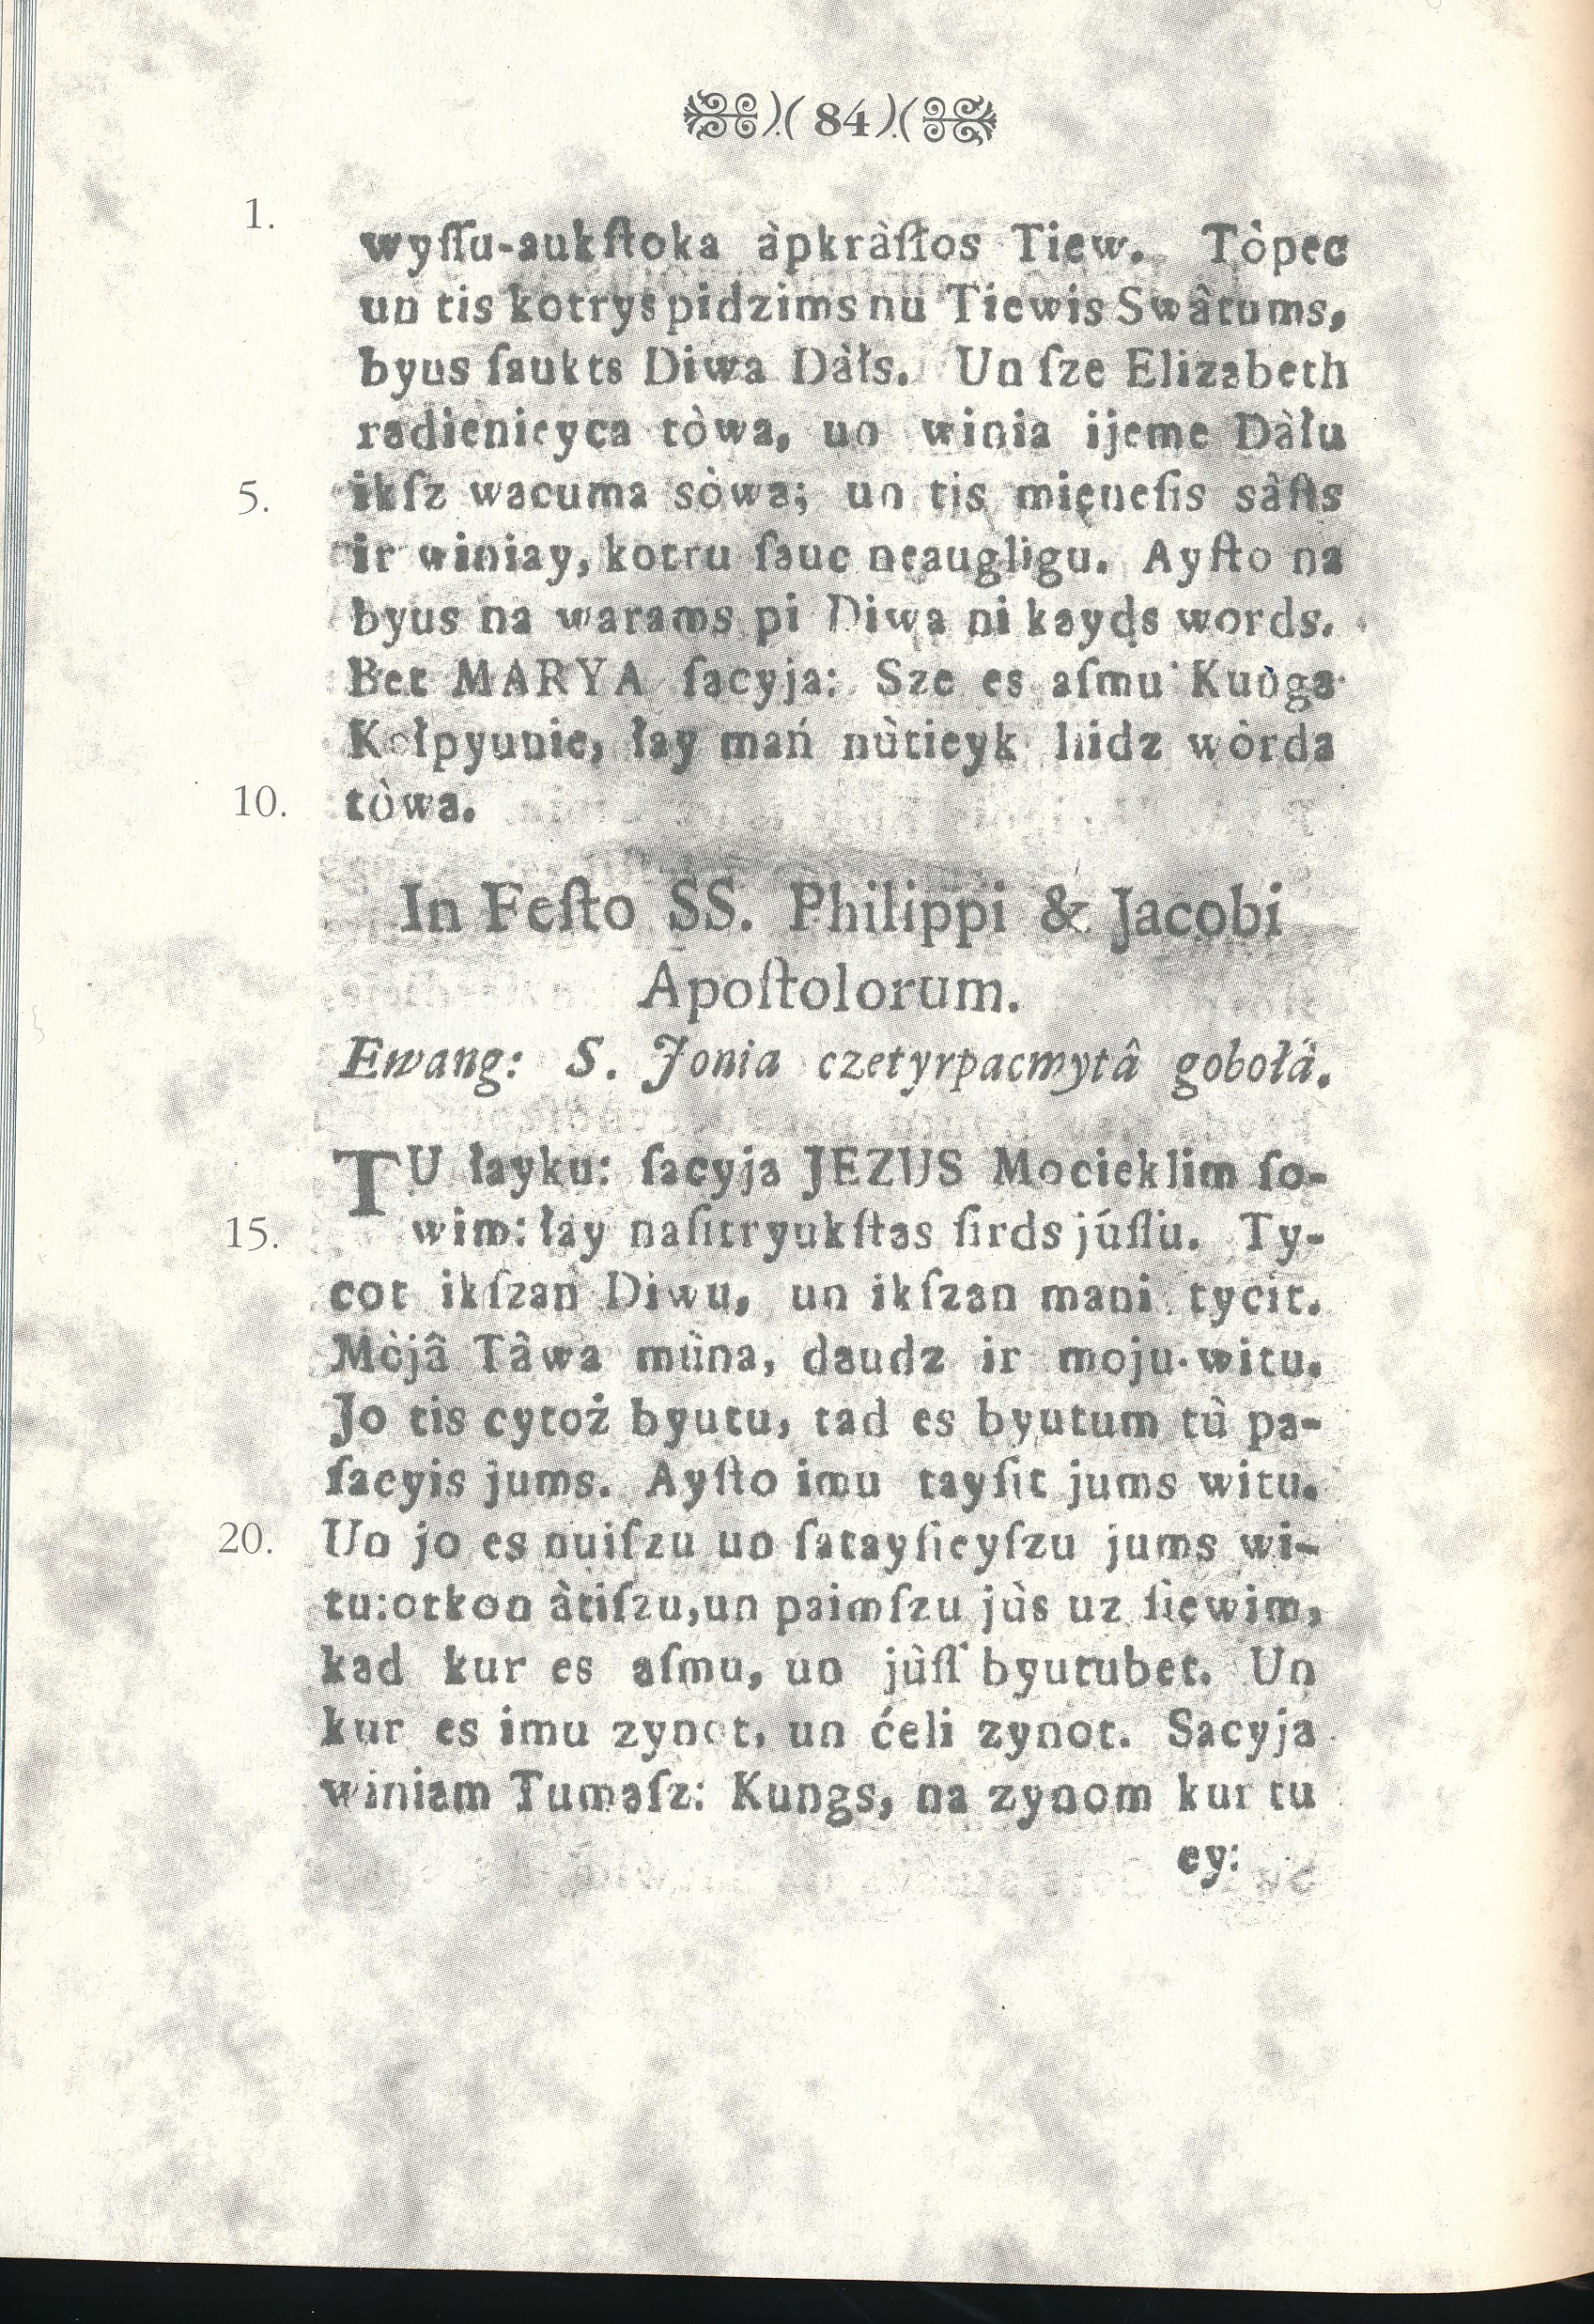 ).( 84 ).(
1.
wyſſu-aukſtoka àpkràſłos Tiew. Tòpec
un tis kotrys pidzims nu Tiewis Swâtums,
byus ſaukts Diwa Dàłs. Un ſze Elizabeth
radienieyca tòwa, un winia ijeme Dàłu
5. ikſz wacuma sòwa; un tis mięneſis sàſts
ir winiay, kotru ſauc neaugligu. Ayſto na
byus na warams pi Diwa ni kayds words.
Bet MARYA ſacyja: Sze es aſmu Kuòga
Kołpyunie, łay mań nùtieyk liidz wòrda
10. tòwa.
In Feſto SS. Philippi & Jacobi
Apoſtolorum.
Ewang: S. Jonia czetyrpacmytâ gobołâ.
TU łayku: ſacyja JEZUS Mocieklim ſo-
15. wim: łay naſitryukſtas ſirds júſſu. Ty-
cot ikſzan Diwu, un ikſzan mani tycit.
Mòjâ Tâwa mùna, daudz ir moju-witu.
Jo tis cytoż byutu, tad es byutum tù pa-
ſacyis jums. Ayſto imu tayſit jums witu.
20. Un jo es nuiſzu un ſatayſieyſzu jums wi-
tu: otkon àtiſzu, un paimſzu jùs uz ſięwim,
kad kur es aſmu, un jùſſ byutubet. Un
kur es imu zynot, un ćeli zynot. Sacyja
winiam Tumaſz: Kungs, na zynom kur tu
ey: